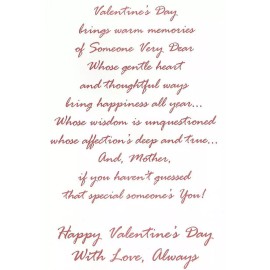 Valentine's Day
brings warm memories
of Someone Very Dear
Whose gentle heart
and thoughtful ways
bring happiness all year...
Whose wisdom is unquestioned
whose affection's deep and true...
And, Mother,
if you haven't guessed
that special someone's You!
Happy Valentine's Day
With Love, Always